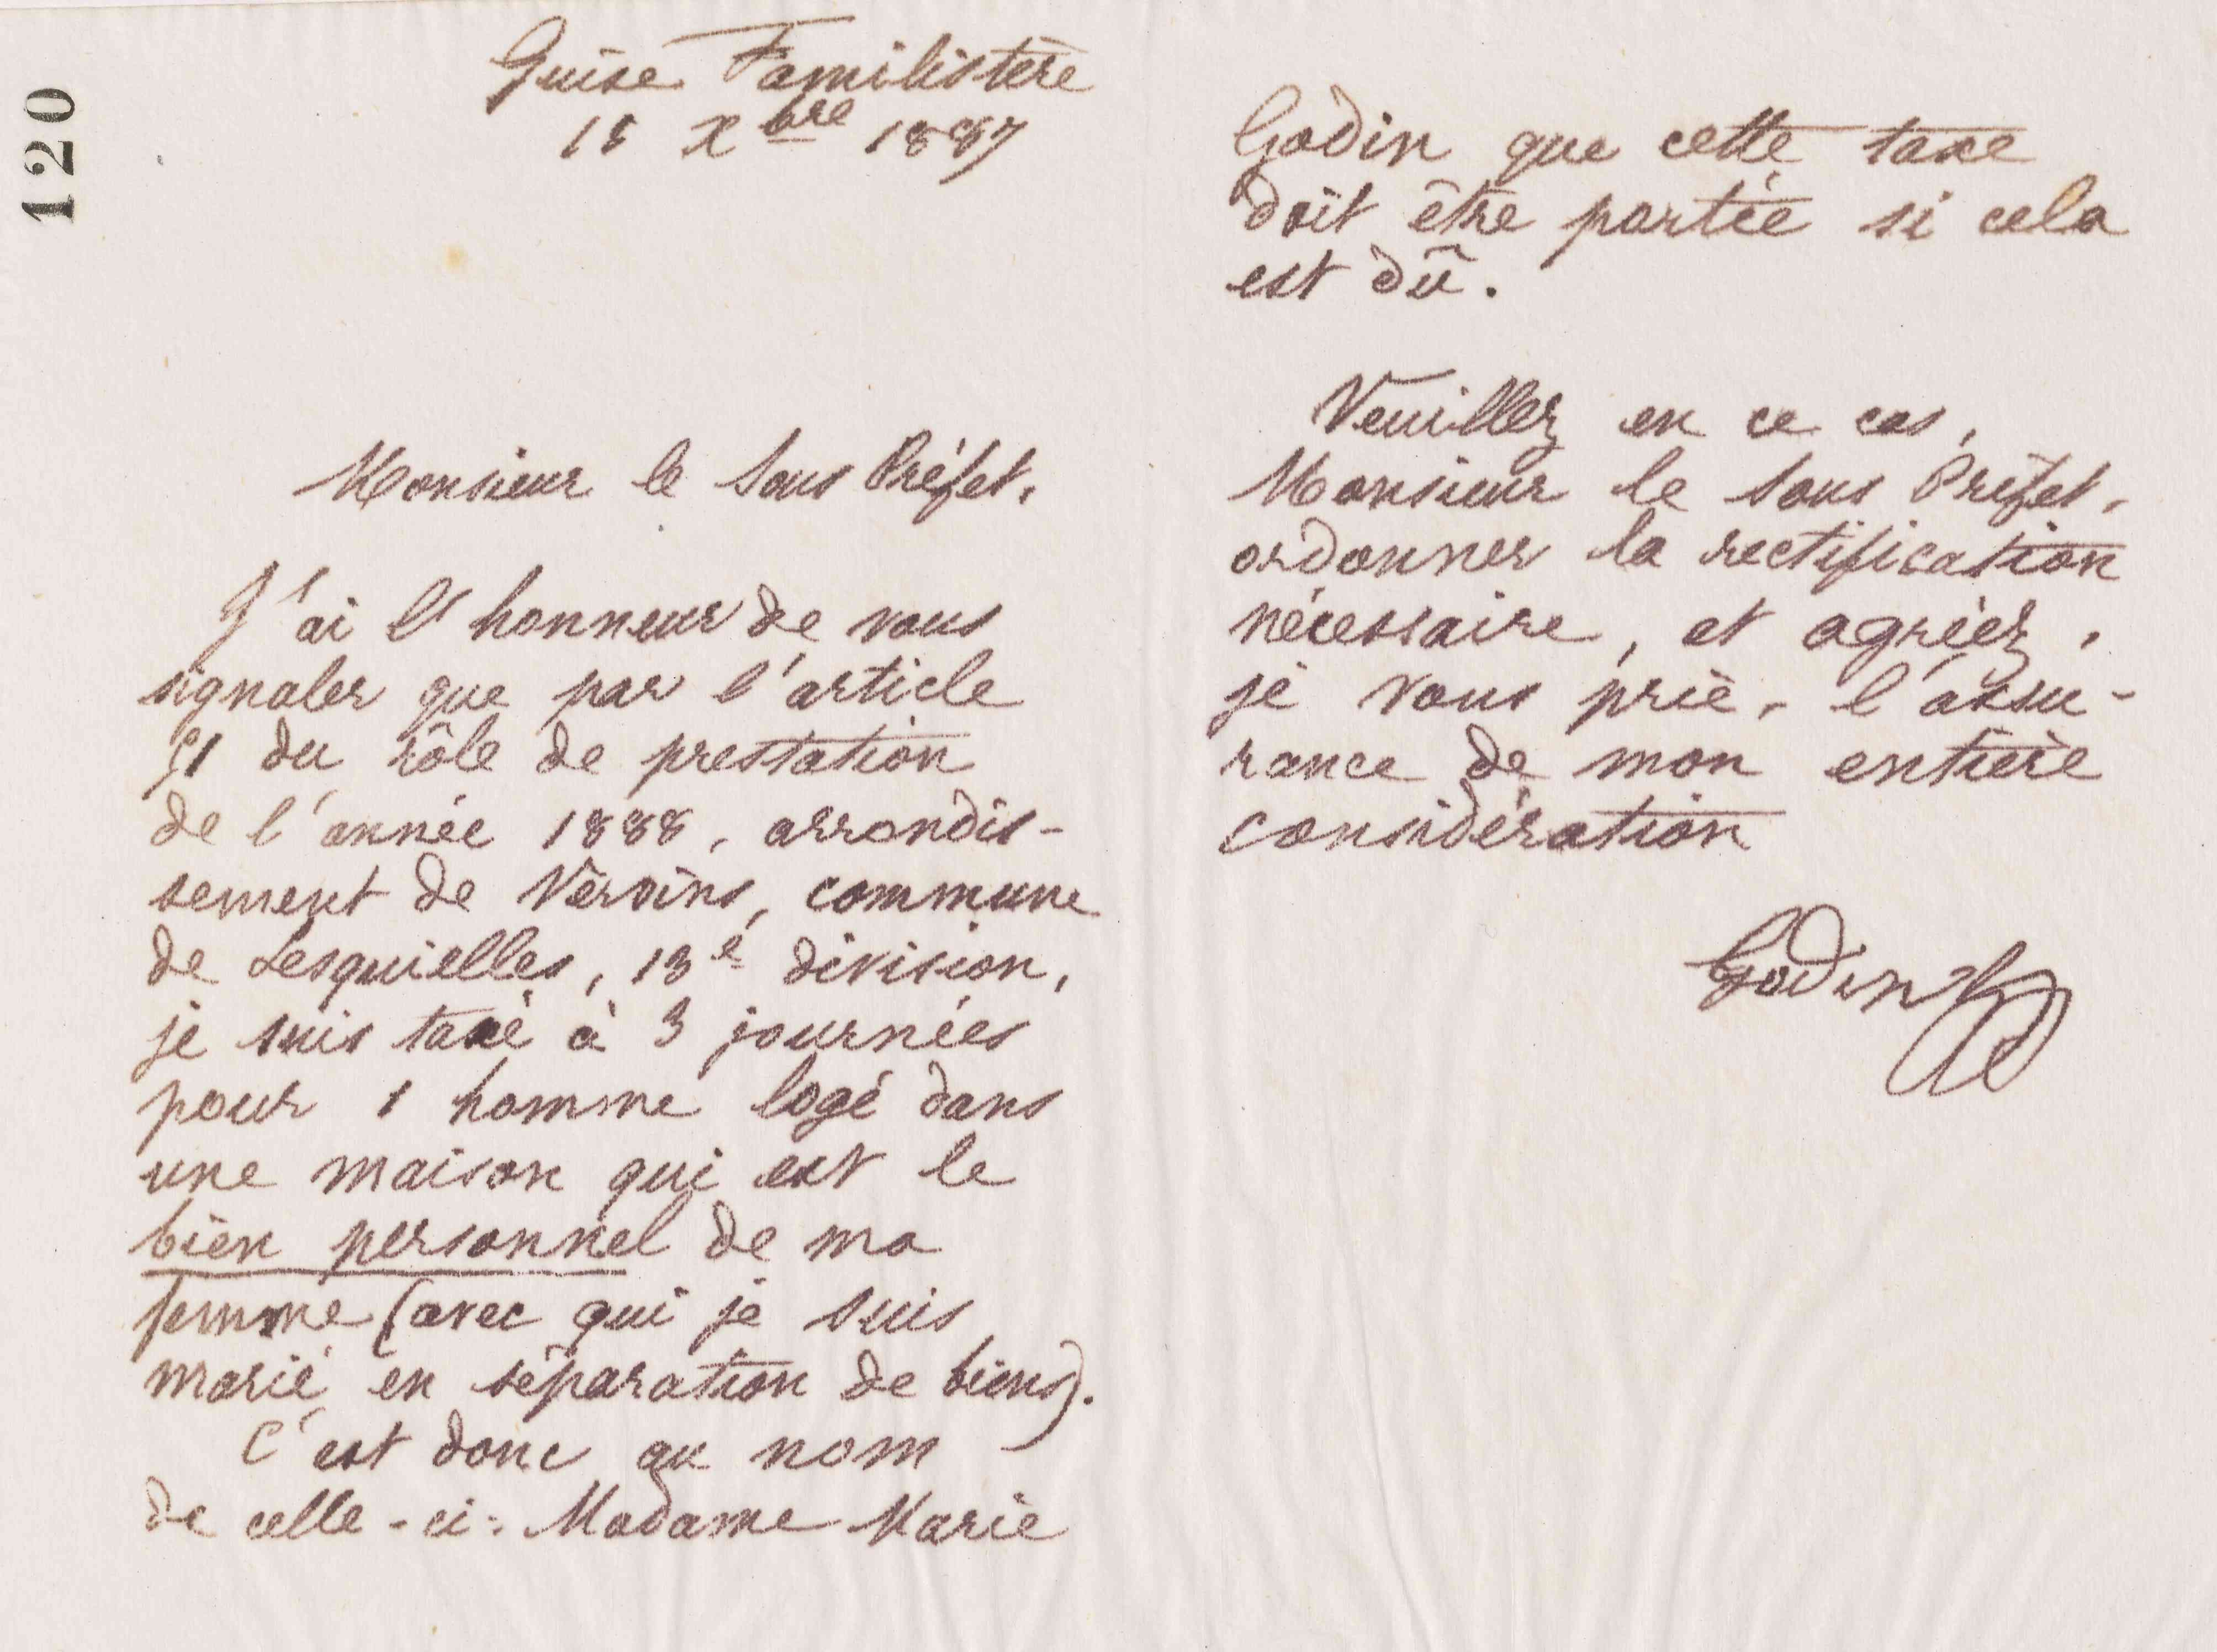 120
Guise Familistère
15 Xbre 1887
Monsieur le Sous Préfet,
J'ai l'honneur de vous
signaler que par l'article
51 du rôle de prestation
de l'année 1888, arrondis-
sement de Vervins, commune
de Lesquielles, 13e division,
je suis taxé à 3 journées
pour 1 homme logé dans
une maison qui est le
bien personnel de ma
femme (avec qui je suis
marié en séparation de biens).
C'est donc au nom
de celle-ci : Madame Marie
Godin que cette taxe
doit être portée si cela
est dû.
Veuillez en ce cas,
Monsieur le Sous Préfet,
ordonner la rectification
nécessaire, et agréez,
je vous prie, l'assu-
rance de mon entière
considération
Godin